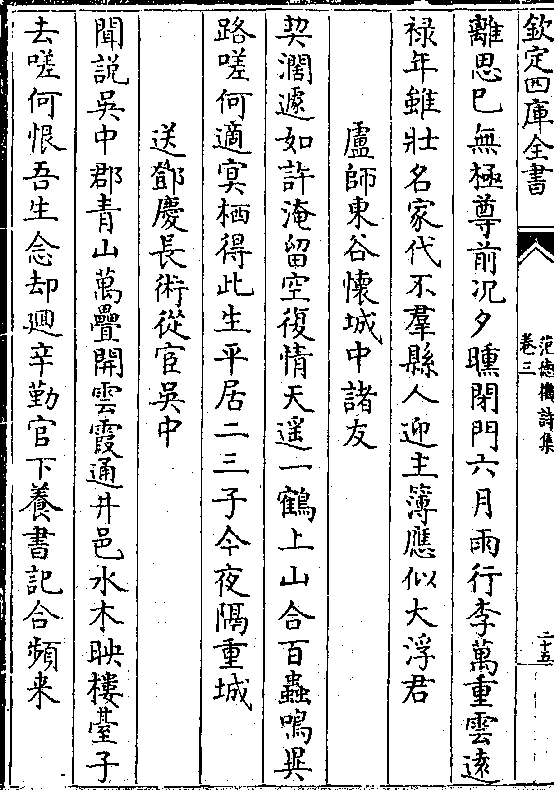 欽定四庫全書
范德機詩集
卷三
二十五
離思已無極尊前況夕曛閉門六月雨行李萬重雲遠
禄年雖壯名家代不羣縣人迎主簿應似大浮君
盧師東谷懷城中諸友
契濶遽如許淹留空復情天遥一鶴上山合百蟲鳴異
路嗟何適冥栖得此生平居二三子今夜隔重城
送鄧慶長術從宦吳中
聞說吳中郡青山萬疊開雲霞通井邑水木映樓臺子
去嗟何恨吾生念却廻辛勤官下養書記合頻来